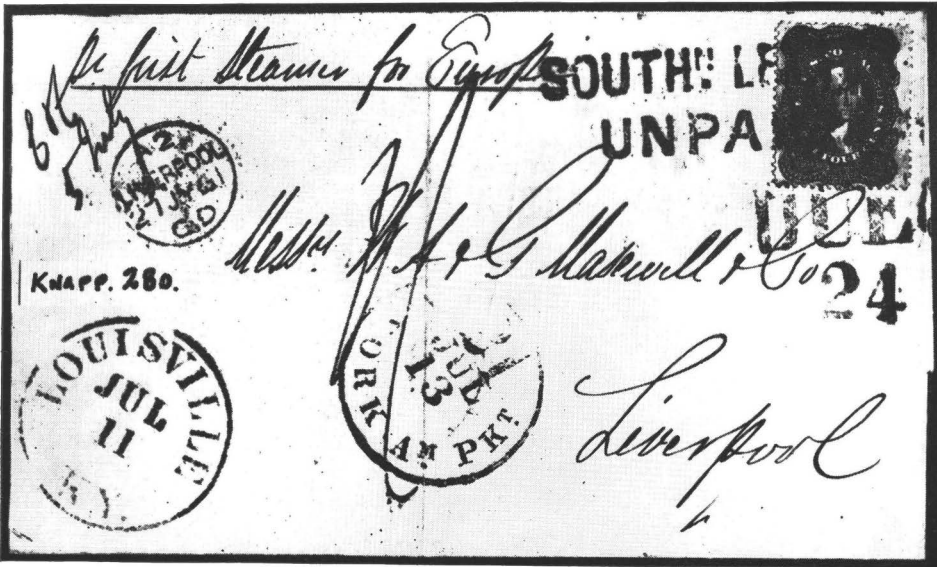 Pr first Steamer for Europe
SOUTHN LE
UNPA
FOUR
LIVERPOOL
27 JY 61
JUL
24
Messrs W A & G Maxwell & Co
KNAPP. 280.
LOUISVILLE
JUL
11
KY.
ORK AM PKT
JUL
13
Liverpool